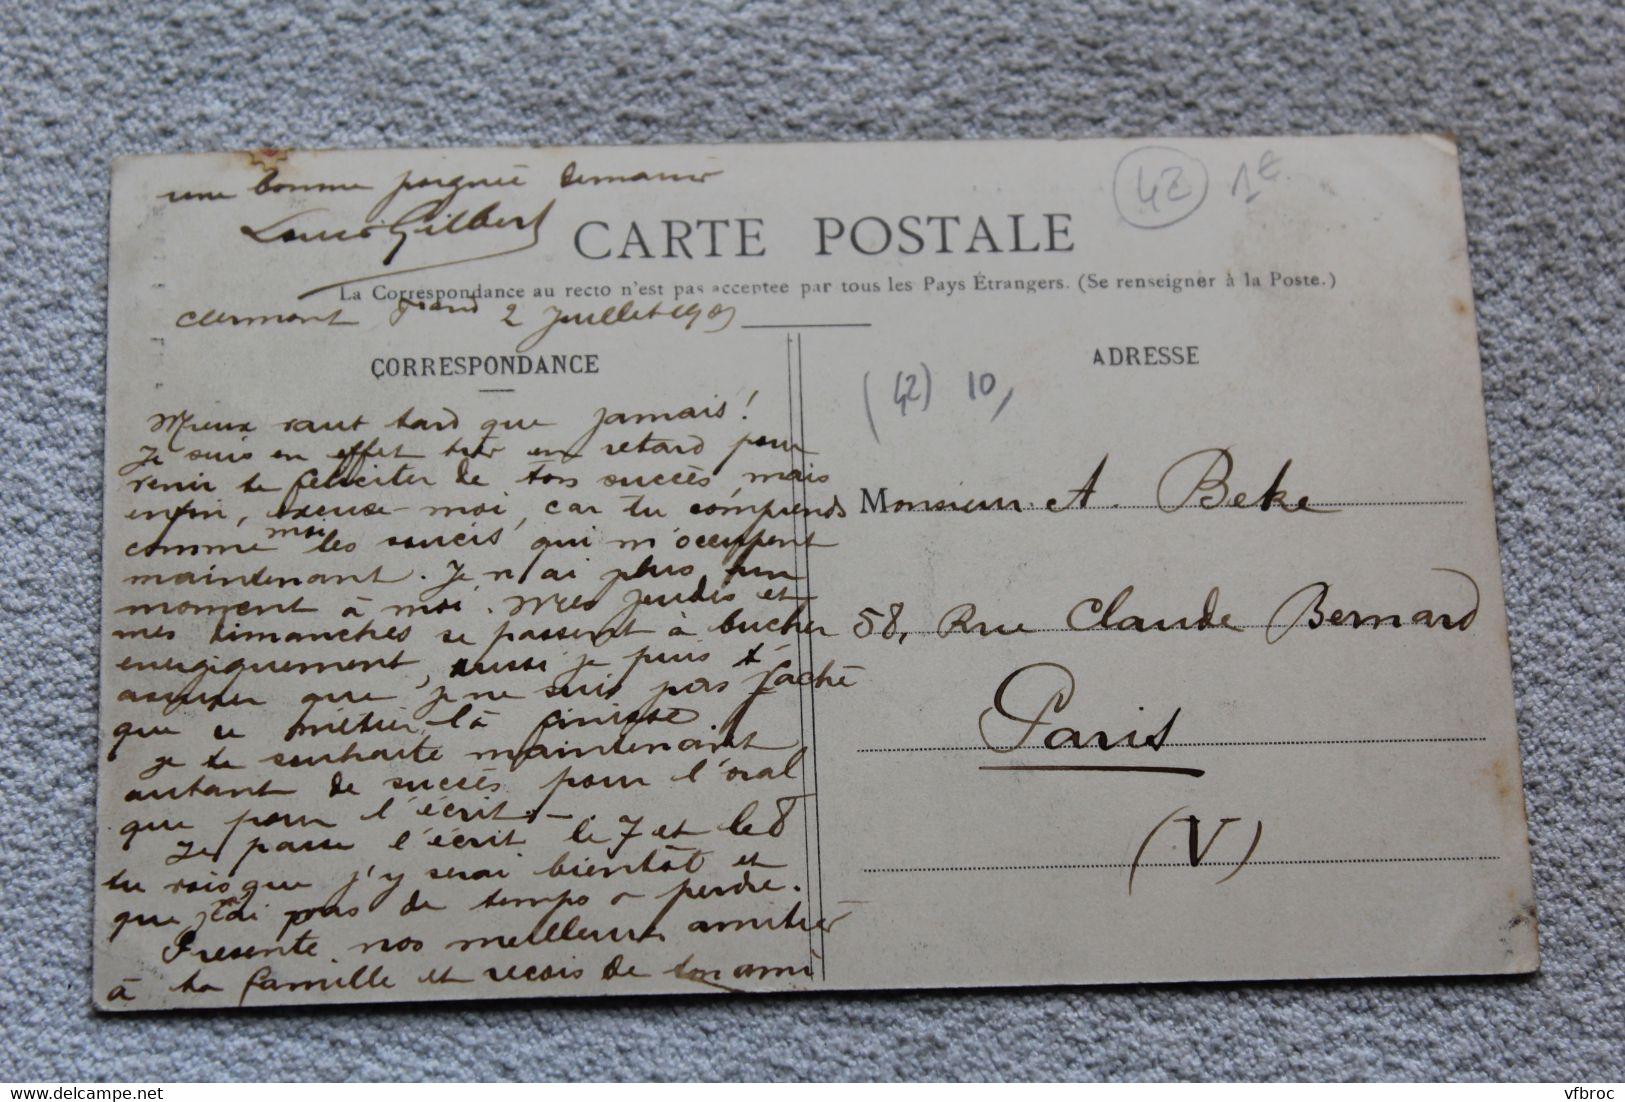 une bonne poignée de main
Louis Gilbert
42 1€
CARTE POSTALE
La Correspondance au recto n'est pas acceptée par tous les Pays Étrangers. (Se renseigner à la Poste.)
Clermont Ferrand 2 Juillet 1909
CORRESPONDANCE
Mieux vaut tard que jamais!
Je suis en effet très en retard pour
venir te féliciter de ton succès, mais
enfin, excuse-moi, car tu comprends
comme moi les soucis qui m'occupent
maintenant. Je n'ai plus un
moment à moi. Mes jeudis et
mes dimanches se passent à bucher
energiquement, aussi je puis t'
assurer que je ne suis pas faché
que ce métier-là finisse.
Je te souhaite maintenant
autant de succès pour l'oral
que pour l'écrit.-
Je passe l'écrit le 7 et le 8
tu vois que j'y serai bientôt et
que j'ai pas de temps à perdre.
Presente nos meilleures amitiés
à ta famille et reçois de ton ami
ADRESSE
(42) 10,
Monsieur A. Beke
58, Rue Claude Bernard
Paris
(V)
delcampe.net
vfbroc